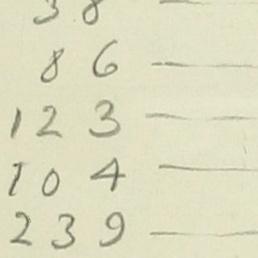 38 —
86 —
123 —
104 —
239 —